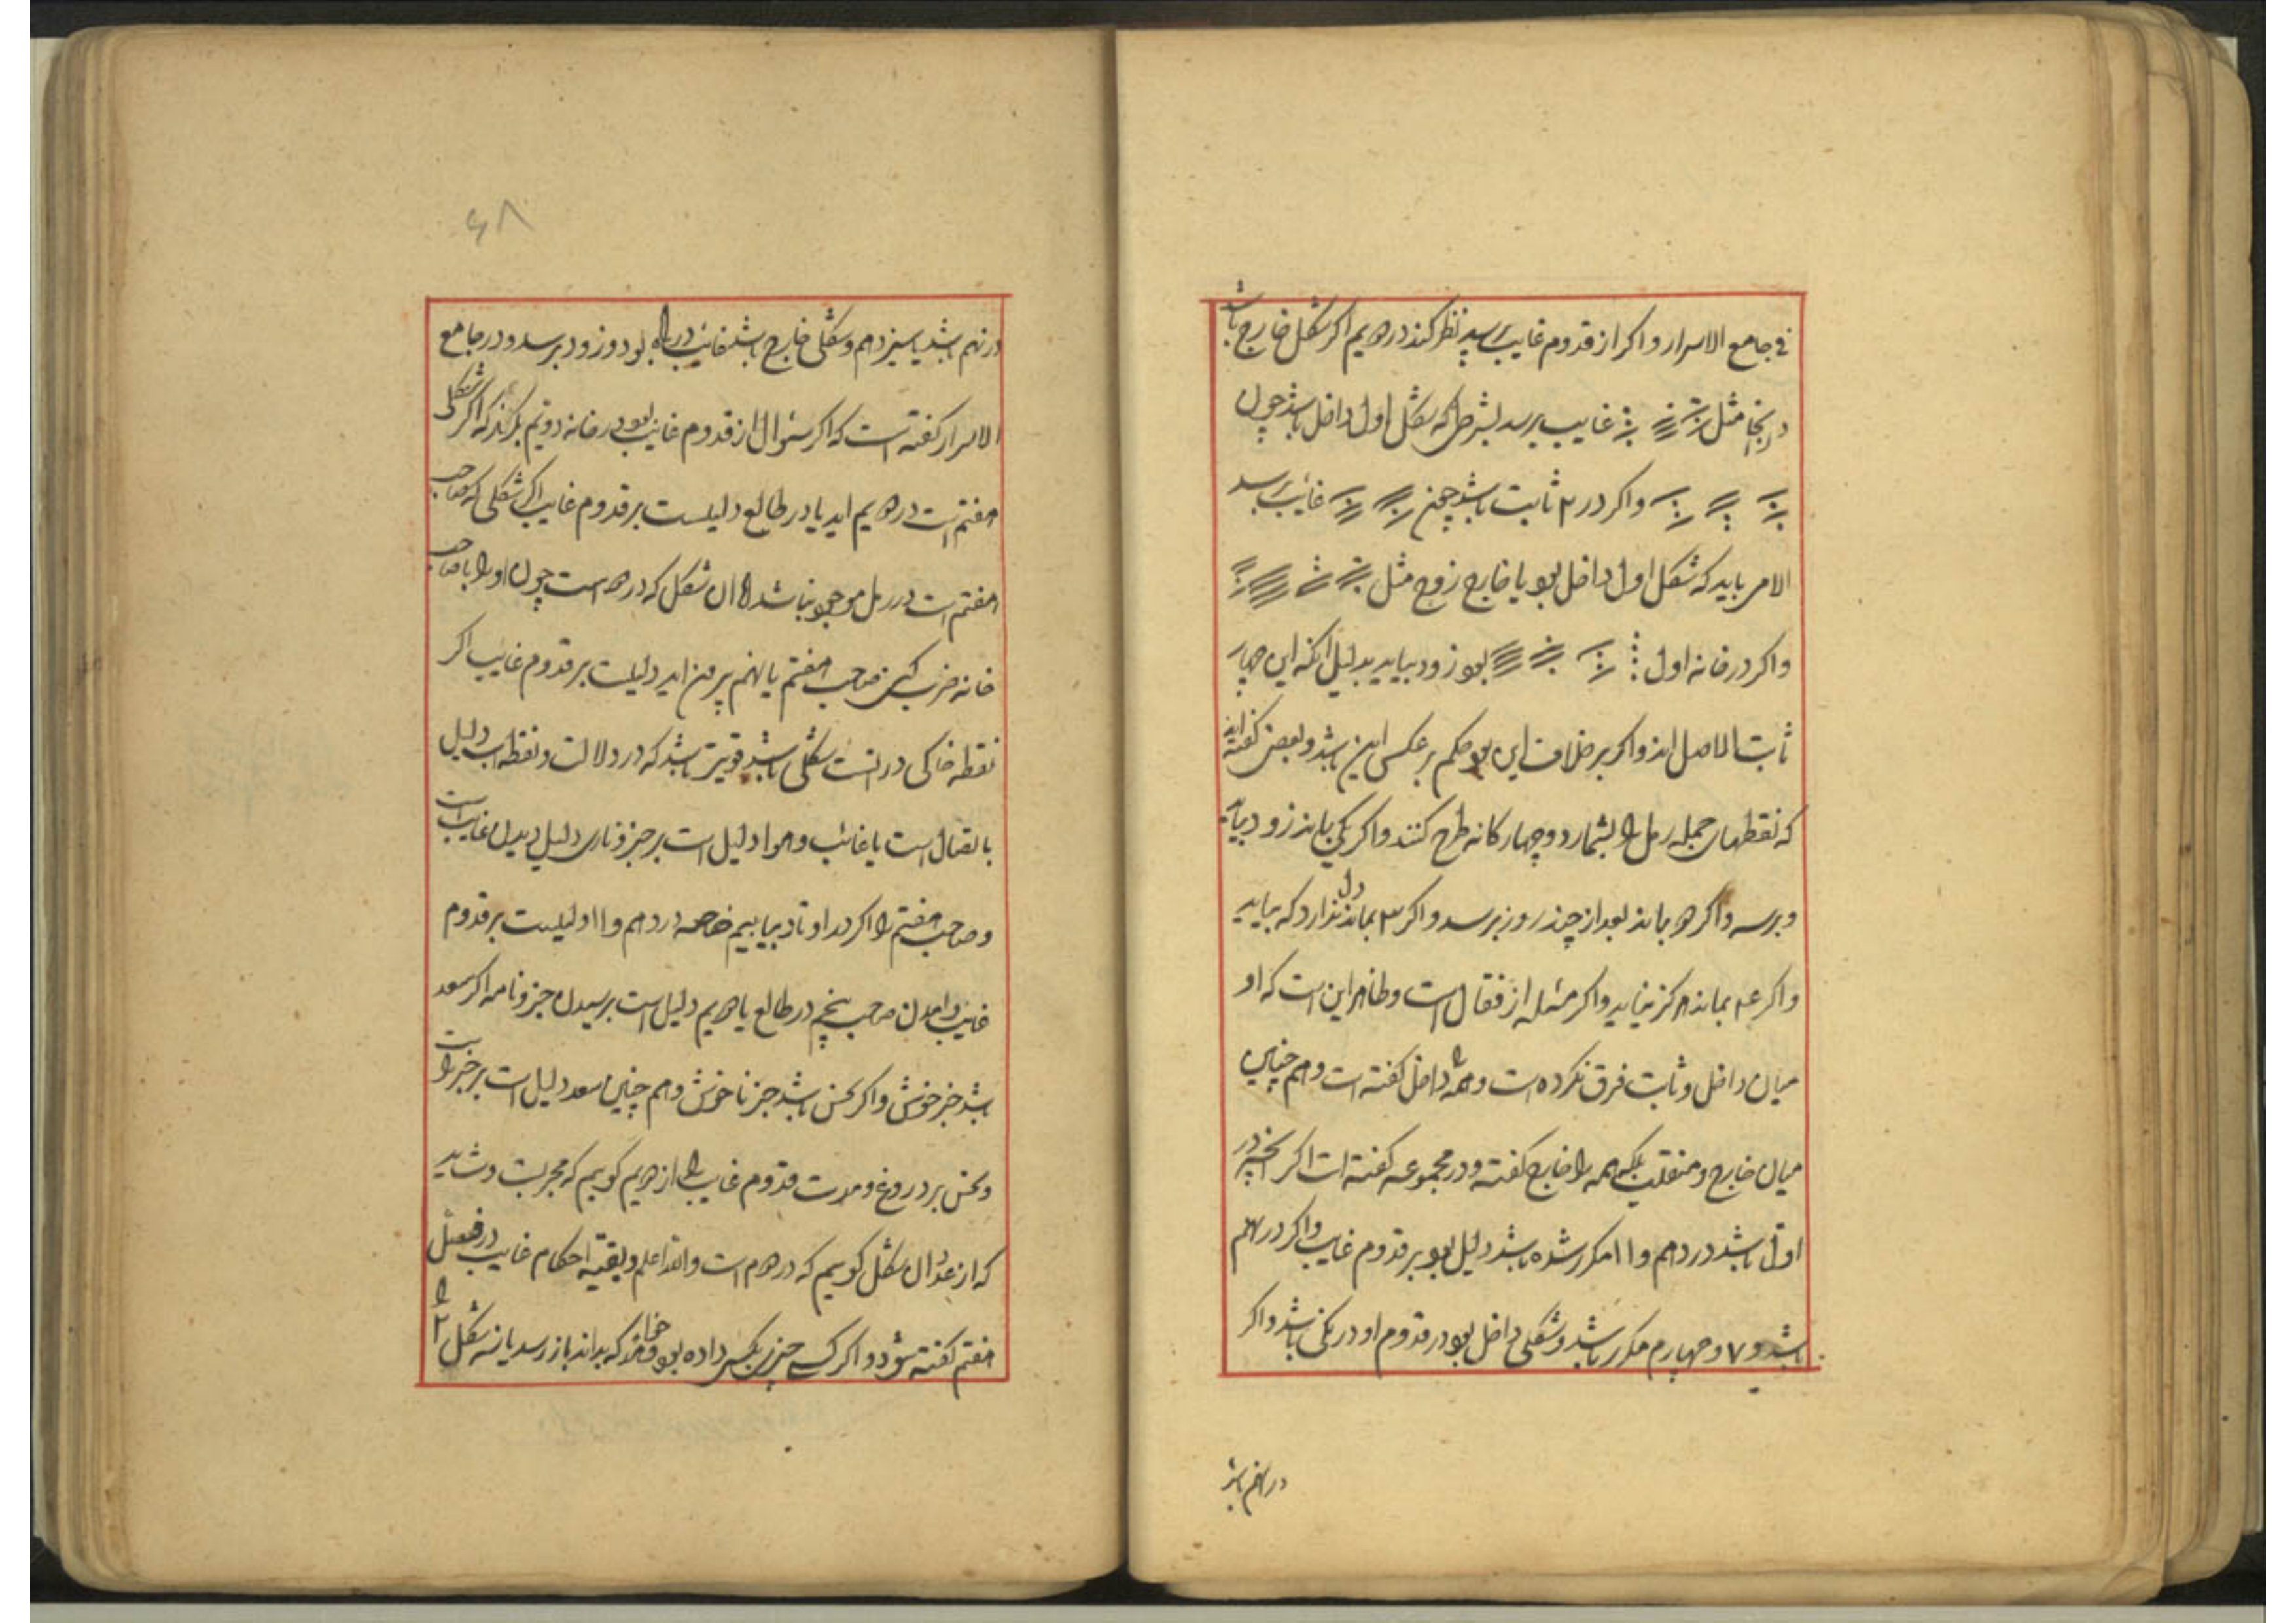 في جامع الاسرار و اکر از قدوم غایب پرسید نظر کند در دویم اکر شکل خارج باشد
در اینجا مثل غایب برسد بشرطی که شکل اول داخل باشد چون
واکر در ۲ ثابت باشد چون غایب برسد
الامر باید که شکل اول داخل بود یا خارج زوج مثل
واکر در خانه اول بود زود بیاید بدلیل انکه این چهار
ثابت الاصل اند واکر بر خلاف این بود حکم بر عکس این باشد و بعضی کفته اند
که نقطهای جمله رمل را بشمارد و چهارکانه طرح کنند واکر یکی بماند زود بیاید
و برسد واکر دو بماند بعد از چند روز برسد واکر ۳ بماند دل ندارد که بیاید
واکر ۴ بماند هرکز نیاید واکر مسئله از فقال است وظاهر این است که او
میان داخل و ثابت فرق نکرده است و همه را داخل کفته است و هم چنین
میان خارج و منقلب بلکه همه را خارج کفته و در مجموعه کفته است اکر انچه در
اول باشد در دهم و ۱۱ مکرر شده باشد دلیل بود بر قدوم غایب واکر در نهم
باشد و ۷ و چهارم مکرر باشد و شکلی داخل بود در قدوم او درنکی باشد واکر
در نهم باشد
۶۸
در نهم باشد یا سیزدهم و شکلی خارج باشد غایب در راه بود و زود برسد و در جامع
الاسرار کفته است که اکر سئوال از قدوم غایب بود در خانه دویم نکرند که اکر شکلی
هفتم است در دویم اید یا در طالع دلیلست بر قدوم غایب اکر شکلی که صاحب
هفتم است در رمل موجود نباشد ان شکل که در دو است چون او را با صاحب
خانه ضرب کنی صاحب هفتم یا نهم بیرون اید دلیلست بر قدوم غایب اکر
نقطه خاکی در شکلی باشد قویتر باشد که در دلالت و نقطه اب دلیل
با غایب و هوا دلیل است بر خبر و ناری دلیل دیدن غایب است
و صاحب هفتم را اکر در اوتاد بیابیم خاصه در دهم و ۱۱ دلیلست بر قدوم
غایب وامدن صاحب پنجم در طالع یا دویم دلیل است بر رسیدن خبر و نامه اکر سعد
باشد خبر خوش واکر نحس باشد خبر ناخوش و هم چنین سعد دلیل است بر خبر راست
و نحس بر دروغ و مدت قدوم غایب را از دویم کوییم که مجربست و شاید
که از عدد ان شکل کوییم که در دوم است والله اعلم و بقیه احکام غایب در فصل
هفتم کفته شود واکر کسی چیزی بکسی داده بود و خواهد که بداند باز رسد یا نه شکل ۲ را